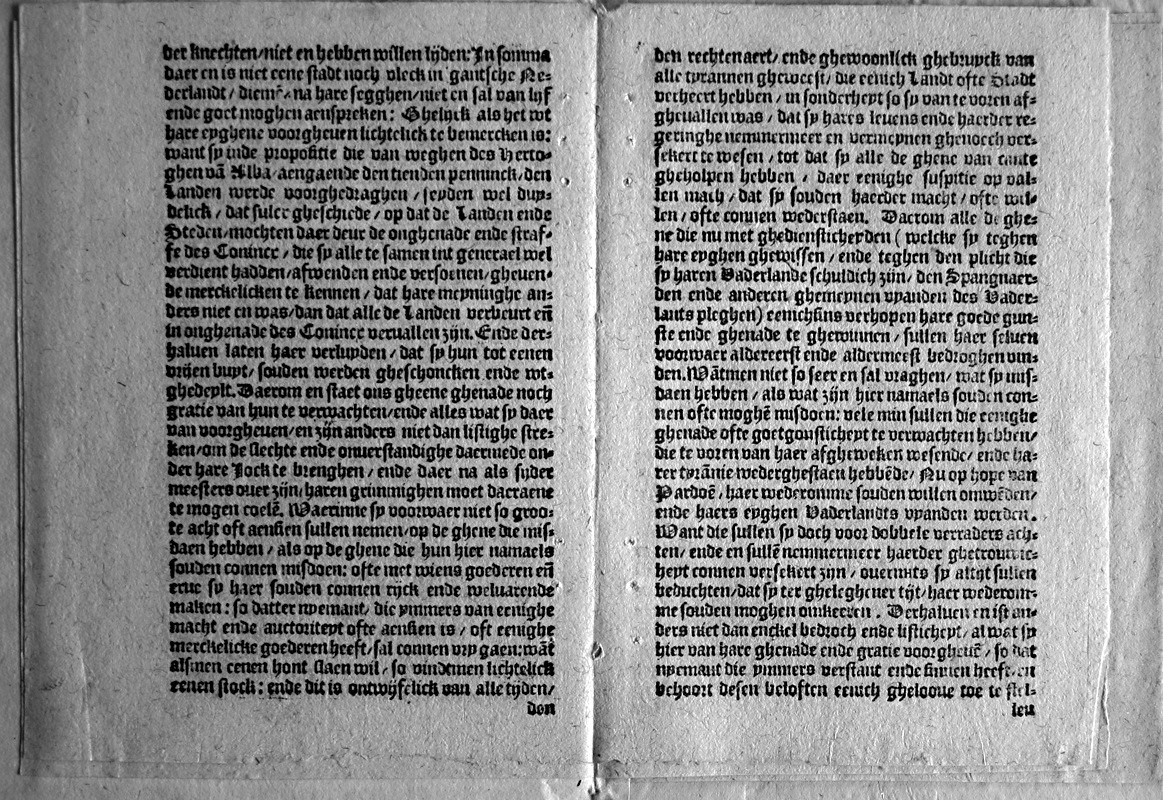 der knechten/niet en hebben willen lijden: In somma
daer en is niet eene stadt noch vleck in gantsche Ne-
derlandt/ diemē/ na hare segghen/niet en sal van lijf
ende goet moghen aenspreken: Ghelijck als het wt
hare eyghene voorgheuen lichtelick te bemercken is:
want sy inde propositie die van weghen des Herto-
ghen vā Alba/aengaende den tienden penninck/den
Landen werde voorghedraghen/seyden wel duy-
delick/dat sulcx gheschiede/op dat de Landen ende
Steden/mochten daer deur de onghenade ende straf-
fe des Conincx/die sy alle te samen int generael wel
verdient hadden/afwenden ende versoenen/gheuen-
de merckelicken te kennen/dat hare meyninghe an-
ders niet en was/dan dat alle de Landen verbeurt eñ
in onghenade des Conincx veruallen zijn. Ende der-
haluen laten haer verluyden/dat sy hun tot eenen
vrijen buyt/souden werden gheschoncken ende wt-
ghedeylt. Daerom en staet ons gheene ghenade noch
gratie van hun te verwachten/ende alles wat sy daer
van voorgheuen/en zijn anders niet dan listighe stre-
ken/om de slechte ende onuerstandighe daermede on-
der hare Jock te brenghen/ende daer na als sijder
meesters ouer zijn/haren grimmighen moet daeraene
te mogen coelē. Waerinne sy voorwaer niet so groo-
te acht oft aensien sullen nemen/op de ghene die mis-
daen hebben/als op de ghene die hun hier namaels
souden connen misdoen: ofte met wiens goederen eñ
erue sy haer souden connen rijck ende weluarende
maken: so datter nyemant/die ymmers van eenighe
macht ende auctoriteyt ofte aensien is/oft eenighe
merckelicke goederen heeft/sal connen vry gaen: wāt
alsmen eenen hont slaen wil/so vindtmen lichtelick
eenen stock: ende dit is ontwijfelick van alle tijden/
den
den rechten aert/ende ghewoonlick ghebruyck van
alle tyrannen gheweest/die eenich Landt ofte Stadt
verheert hebben/in sonderheyt so sy van te voren af-
gheuallen was/dat sy hares leuens ende haerder re-
geringhe nemmermeer en vermeynen ghenoech ver-
sekert te wesen/tot dat sy alle de ghene van cante
gheholpen hebben/daer eenighe suspitie op val-
len mach/dat sy souden haerder macht/ofte wil-
len/ofte connen wederstaen. Daerom alle de ghe-
ne die nu met ghediensticheyden (welcke sy teghen
hare eyghen ghewissen/ende teghen den plicht die
sy haren Vaderlande schuldich zijn/den Spangnaer-
den ende anderen ghemeynen vyanden des Vader-
lants pleghen) eenichsins verhopen hare goede gun-
ste ende ghenade te ghewinnen/sullen haer seluen
voorwaer aldereerst ende aldermeest bedroghen vin-
den. Wātmen niet so seer en sal vraghen/wat sy mis-
daen hebben/als wat zijn hier namaels souden con-
nen ofte moghē misdoen: vele min sullen die eenighe
ghenade ofte goetgonsticheyt te verwachten hebben/
die te voren van haer afgheweken wesende/ende ha-
rer tyrānie wederghestaen hebbēde/Nu op hope van
Pardoē/haer wederomme souden willen omwēden/
ende haers eyghen Vaderlandts vyanden werden.
Want die sullen sy doch voor dobbele verraders ach-
ten/ende en sullē nemmermeer haerder ghetrouwic-
heyt connen versekert zijn/ouermits sy altijt sullen
beduchten/dat sy ter gheleghener tijt/haer wederom-
me souden moghen omkeeren. Derhaluen en is an-
ders niet dan enckel bedroch ende listicheyt/al wat sy
hier van hare ghenade ende gratie voorgheuē/so dat
nyemant die ymmers verstant ende sinnen heeft/en
behoort desen beloften eenich ghelooue toe te stel-
len